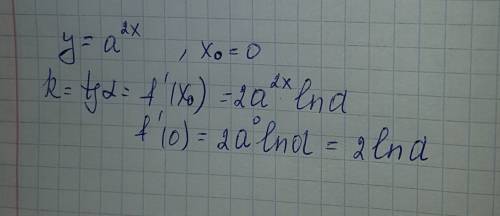 y = a^{2x} , x₀ = 0
k = tgα = f'(x₀) = 2a^{2x} ln a
f'(0) = 2a⁰ ln a = 2 ln a